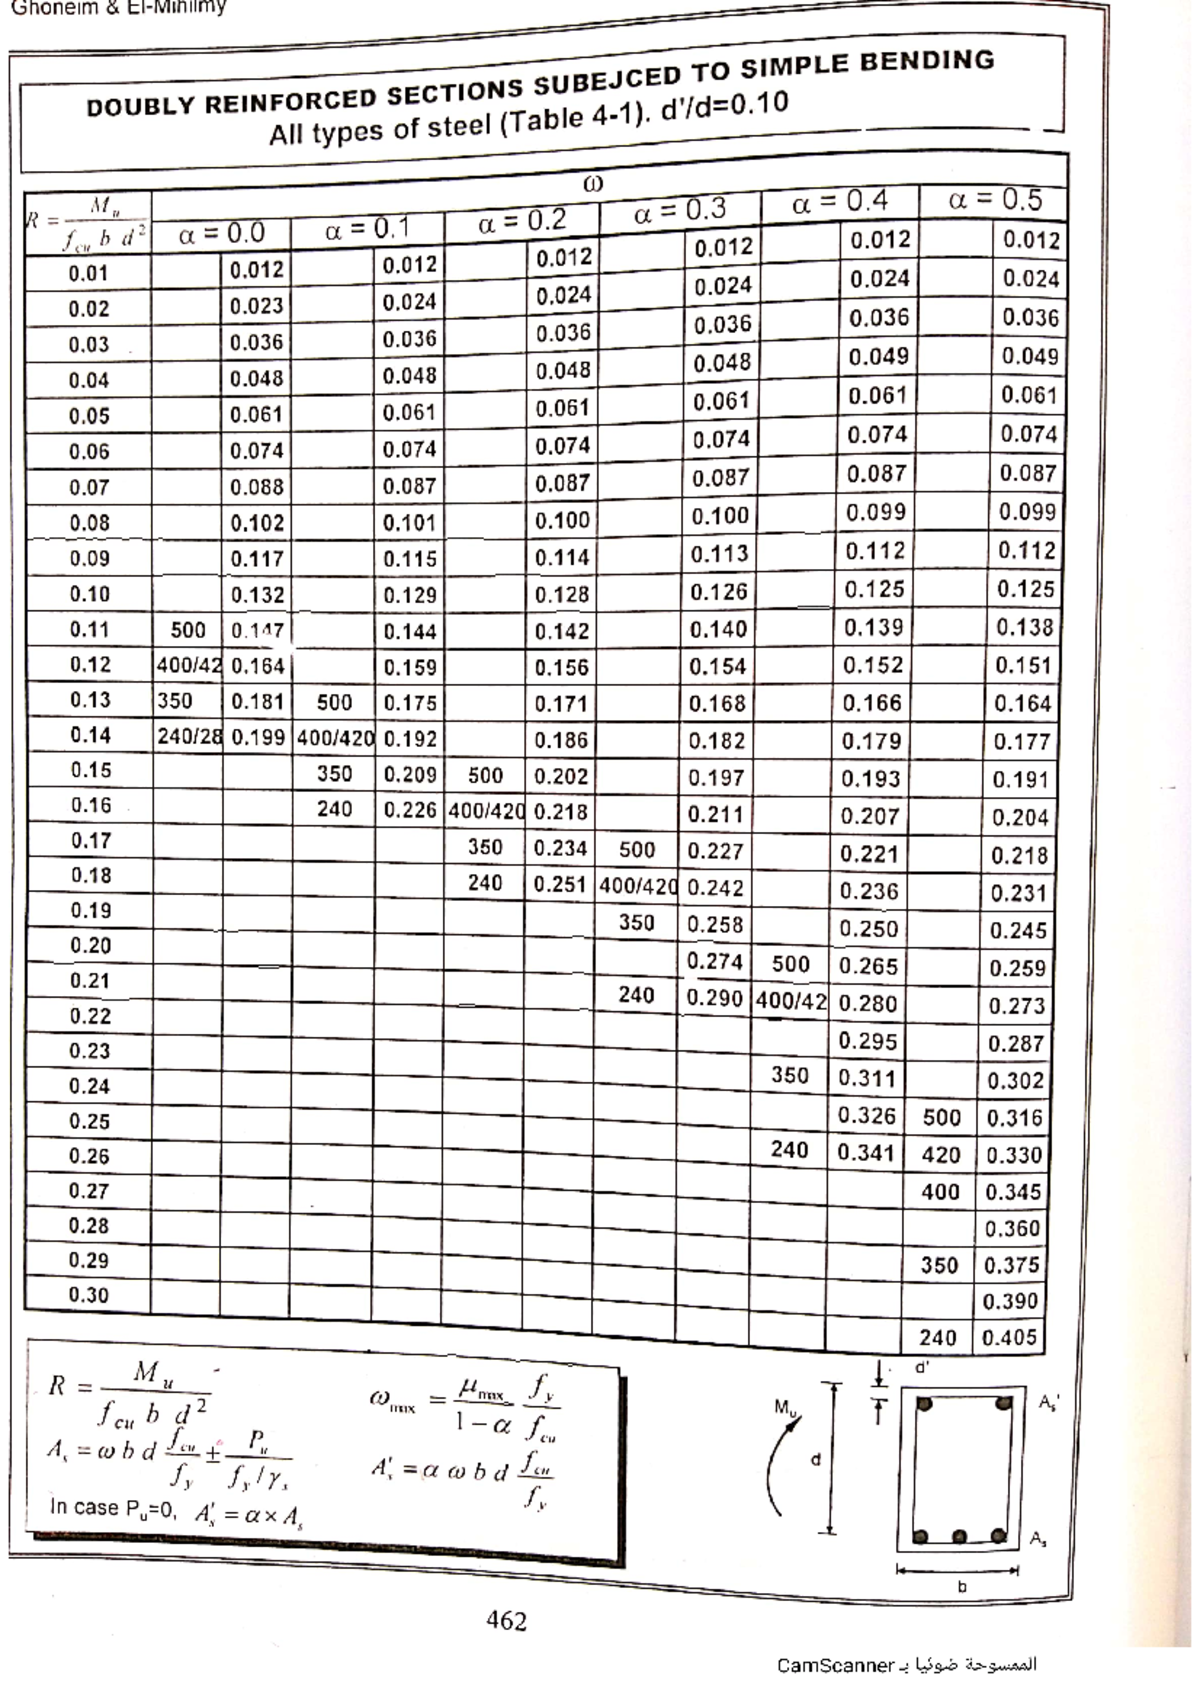 Ghoneim & El-Mihilmy
DOUBLY REINFORCED SECTIONS SUBEJCED TO SIMPLE BENDING
All types of steel (Table 4-1). d'/d=0.10
R = M_u / f_cu b d² ω
α = 0.0 α = 0.1 α = 0.2 α = 0.3 α = 0.4 α = 0.5
0.01 0.012 0.012 0.012 0.012 0.012 0.012
0.02 0.023 0.024 0.024 0.024 0.024 0.024
0.03 0.036 0.036 0.036 0.036 0.036 0.036
0.04 0.048 0.048 0.048 0.048 0.049 0.049
0.05 0.061 0.061 0.061 0.061 0.061 0.061
0.06 0.074 0.074 0.074 0.074 0.074 0.074
0.07 0.088 0.087 0.087 0.087 0.087 0.087
0.08 0.102 0.101 0.100 0.100 0.099 0.099
0.09 0.117 0.115 0.114 0.113 0.112 0.112
0.10 0.132 0.129 0.128 0.126 0.125 0.125
0.11 500 0.147 0.144 0.142 0.140 0.139 0.138
0.12 400/42 0.164 0.159 0.156 0.154 0.152 0.151
0.13 350 0.181 500 0.175 0.171 0.168 0.166 0.164
0.14 240/28 0.199 400/420 0.192 0.186 0.182 0.179 0.177
0.15 350 0.209 500 0.202 0.197 0.193 0.191
0.16 240 0.226 400/420 0.218 0.211 0.207 0.204
0.17 350 0.234 500 0.227 0.221 0.218
0.18 240 0.251 400/420 0.242 0.236 0.231
0.19 350 0.258 0.250 0.245
0.20 0.274 500 0.265 0.259
0.21 240 0.290 400/42 0.280 0.273
0.22 0.295 0.287
0.23 350 0.311 0.302
0.24 0.326 500 0.316
0.25 240 0.341 420 0.330
0.26 400 0.345
0.27 0.360
0.28 350 0.375
0.29 0.390
0.30 240 0.405
R = M_u / f_cu b d² ω_max = μ_max / 1−α f_y / f_cu
A_s = ω b d f_cu / f_y ± P_u / f_y/γ_s A'_s = α ω b d f_cu / f_y
In case P_u=0, A'_s = α × A_s
d'
M_u A_s'
d
A_s
b
462
الممسوحة ضوئيا بـ CamScanner